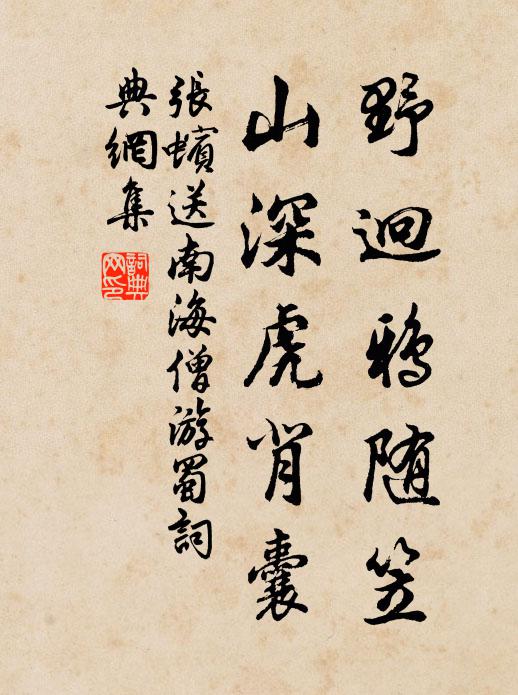 野迥鴉随笠
山深虎背囊
張蠙送南海僧游蜀詞
典網集
詞典
网印